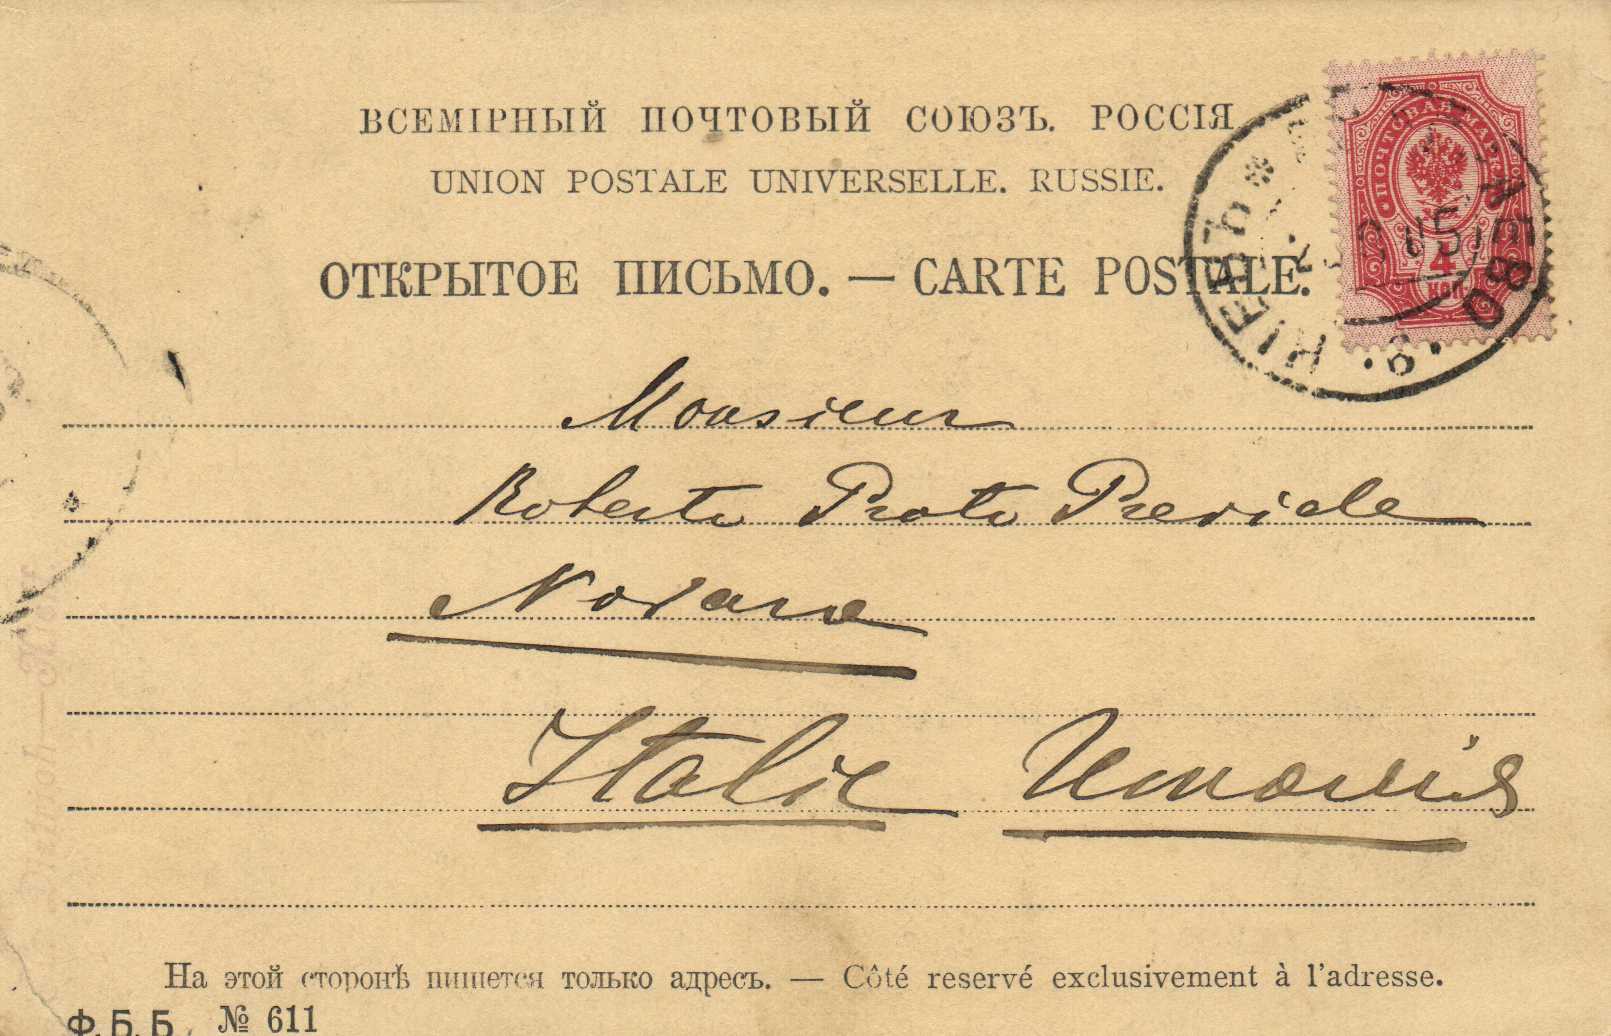 ВСЕМІРНЫЙ ПОЧТОВЫЙ СОЮЗЪ. РОССІЯ
UNION POSTALE UNIVERSELLE. RUSSIE.
ОТКРЫТОЕ ПИСЬМО. — CARTE POSTALE.
ПОЧТОВАЯ МАРКА
4
КОП
КІЕВЪ
8
Monsieur
Roberto Proto Preside
Novara
Italie Италія
На этой сторонѣ пишется только адресъ. — Côté reservé exclusivement à l'adresse.
Ф.Б.Б. № 611